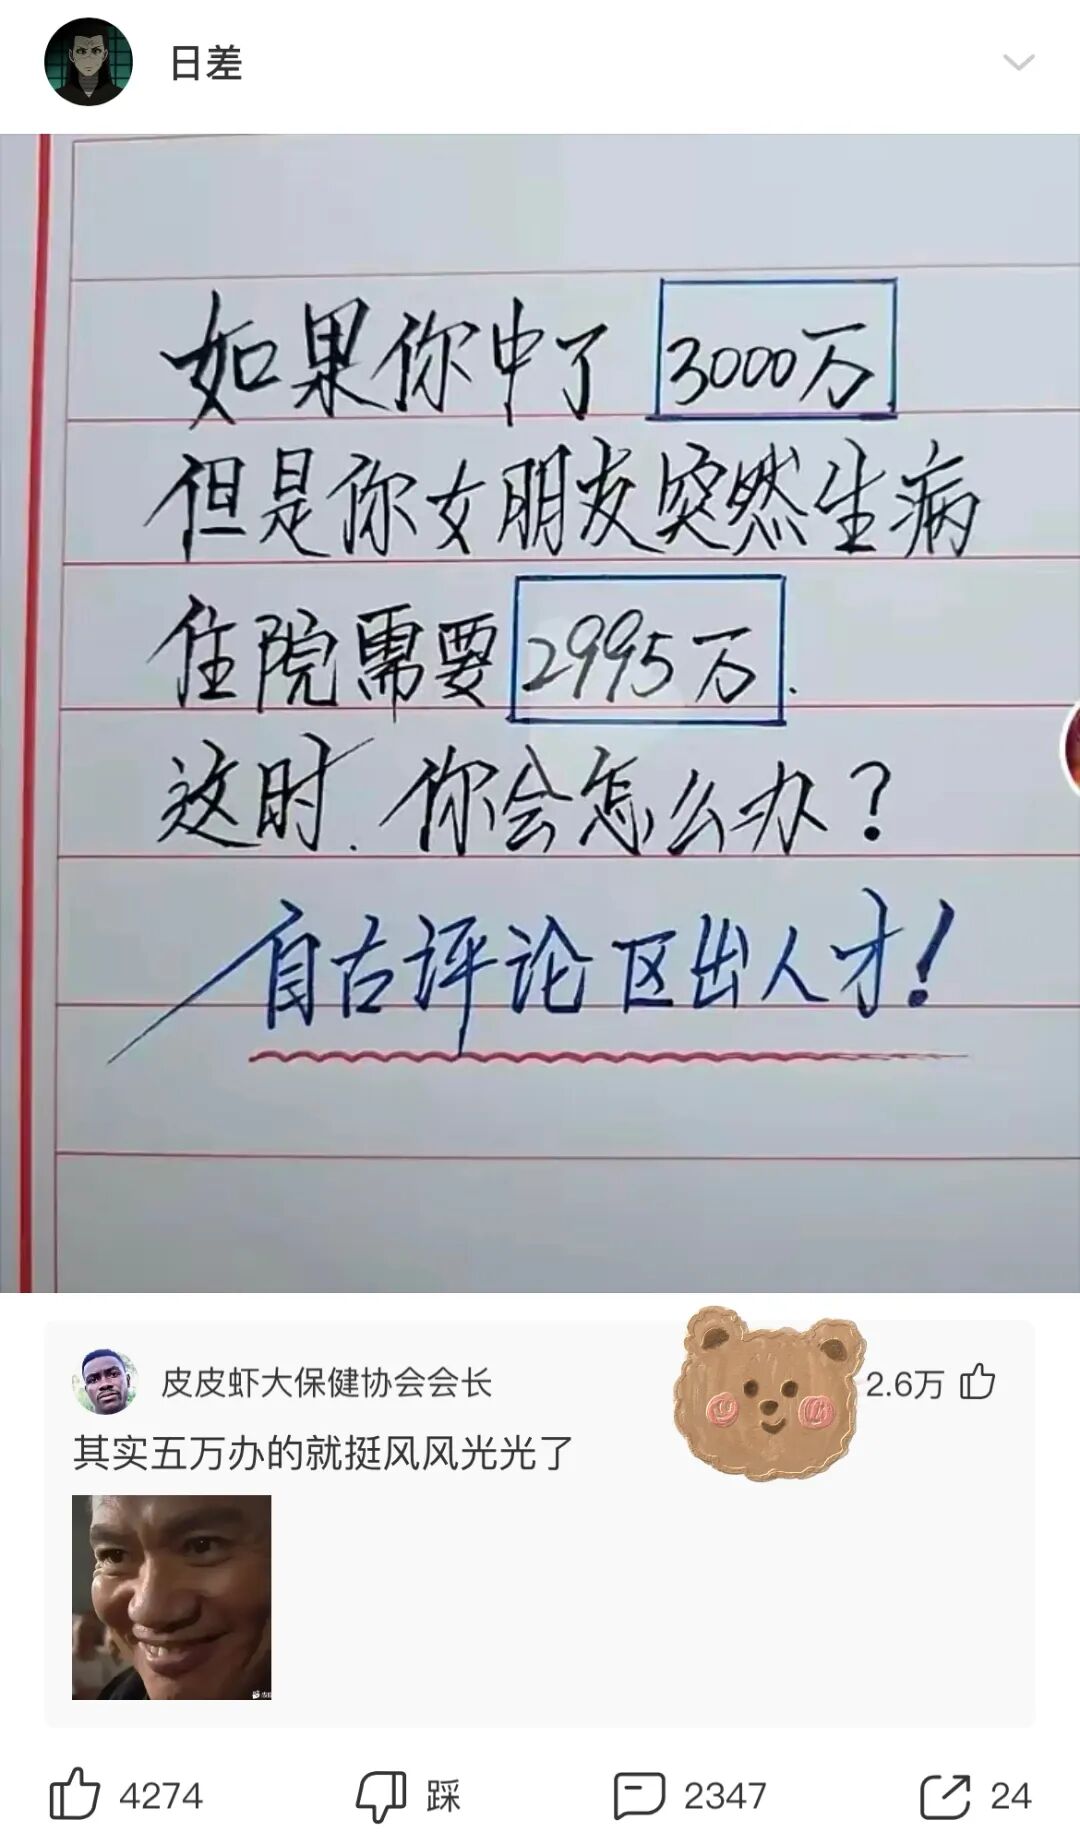 日差
如果你中了 3000万
但是你女朋友突然生病
住院需要 2995万.
这时.你会怎么办?
自古评论区出人才!
皮皮虾大保健协会会长
2.6万
其实五万办的就挺风风光光了
4274 踩 2347 24